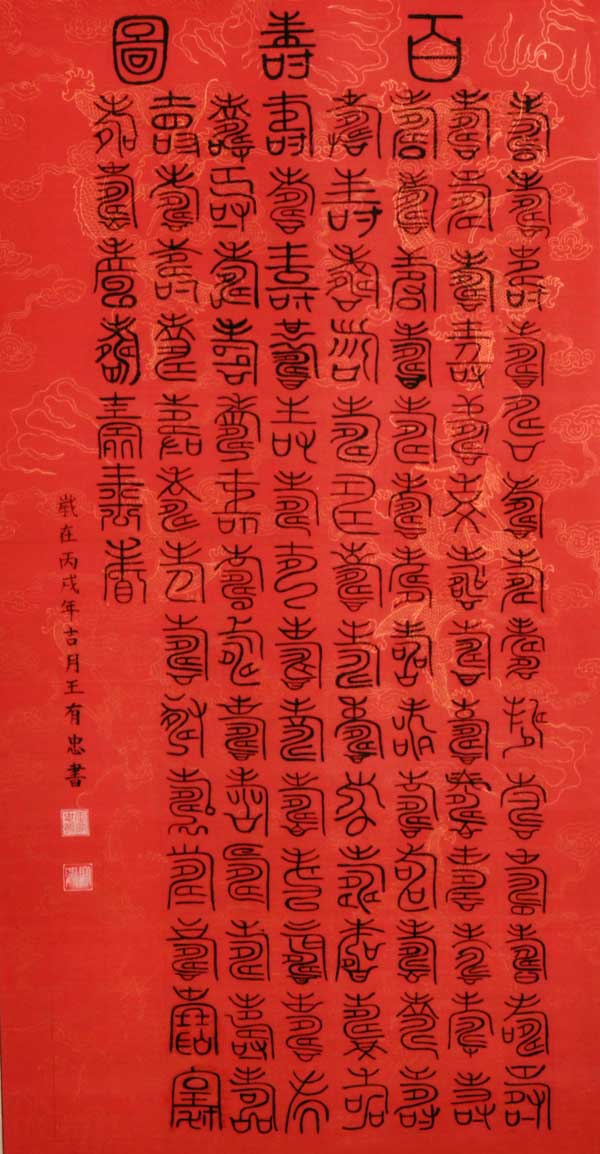 百壽圖
壽壽壽壽壽壽壽壽壽壽壽壽壽壽
壽壽壽壽壽壽壽壽壽壽壽壽壽壽
壽壽壽壽壽壽壽壽壽壽壽壽壽壽
壽壽壽壽壽壽壽壽壽壽壽壽壽壽
壽壽壽壽壽壽壽壽壽壽壽壽壽壽
壽壽壽壽壽壽壽壽壽壽壽壽壽壽
壽壽壽壽壽壽壽壽壽壽壽壽壽壽
壽壽壽壽壽壽壽
歲在丙戌年吉月王有忠書